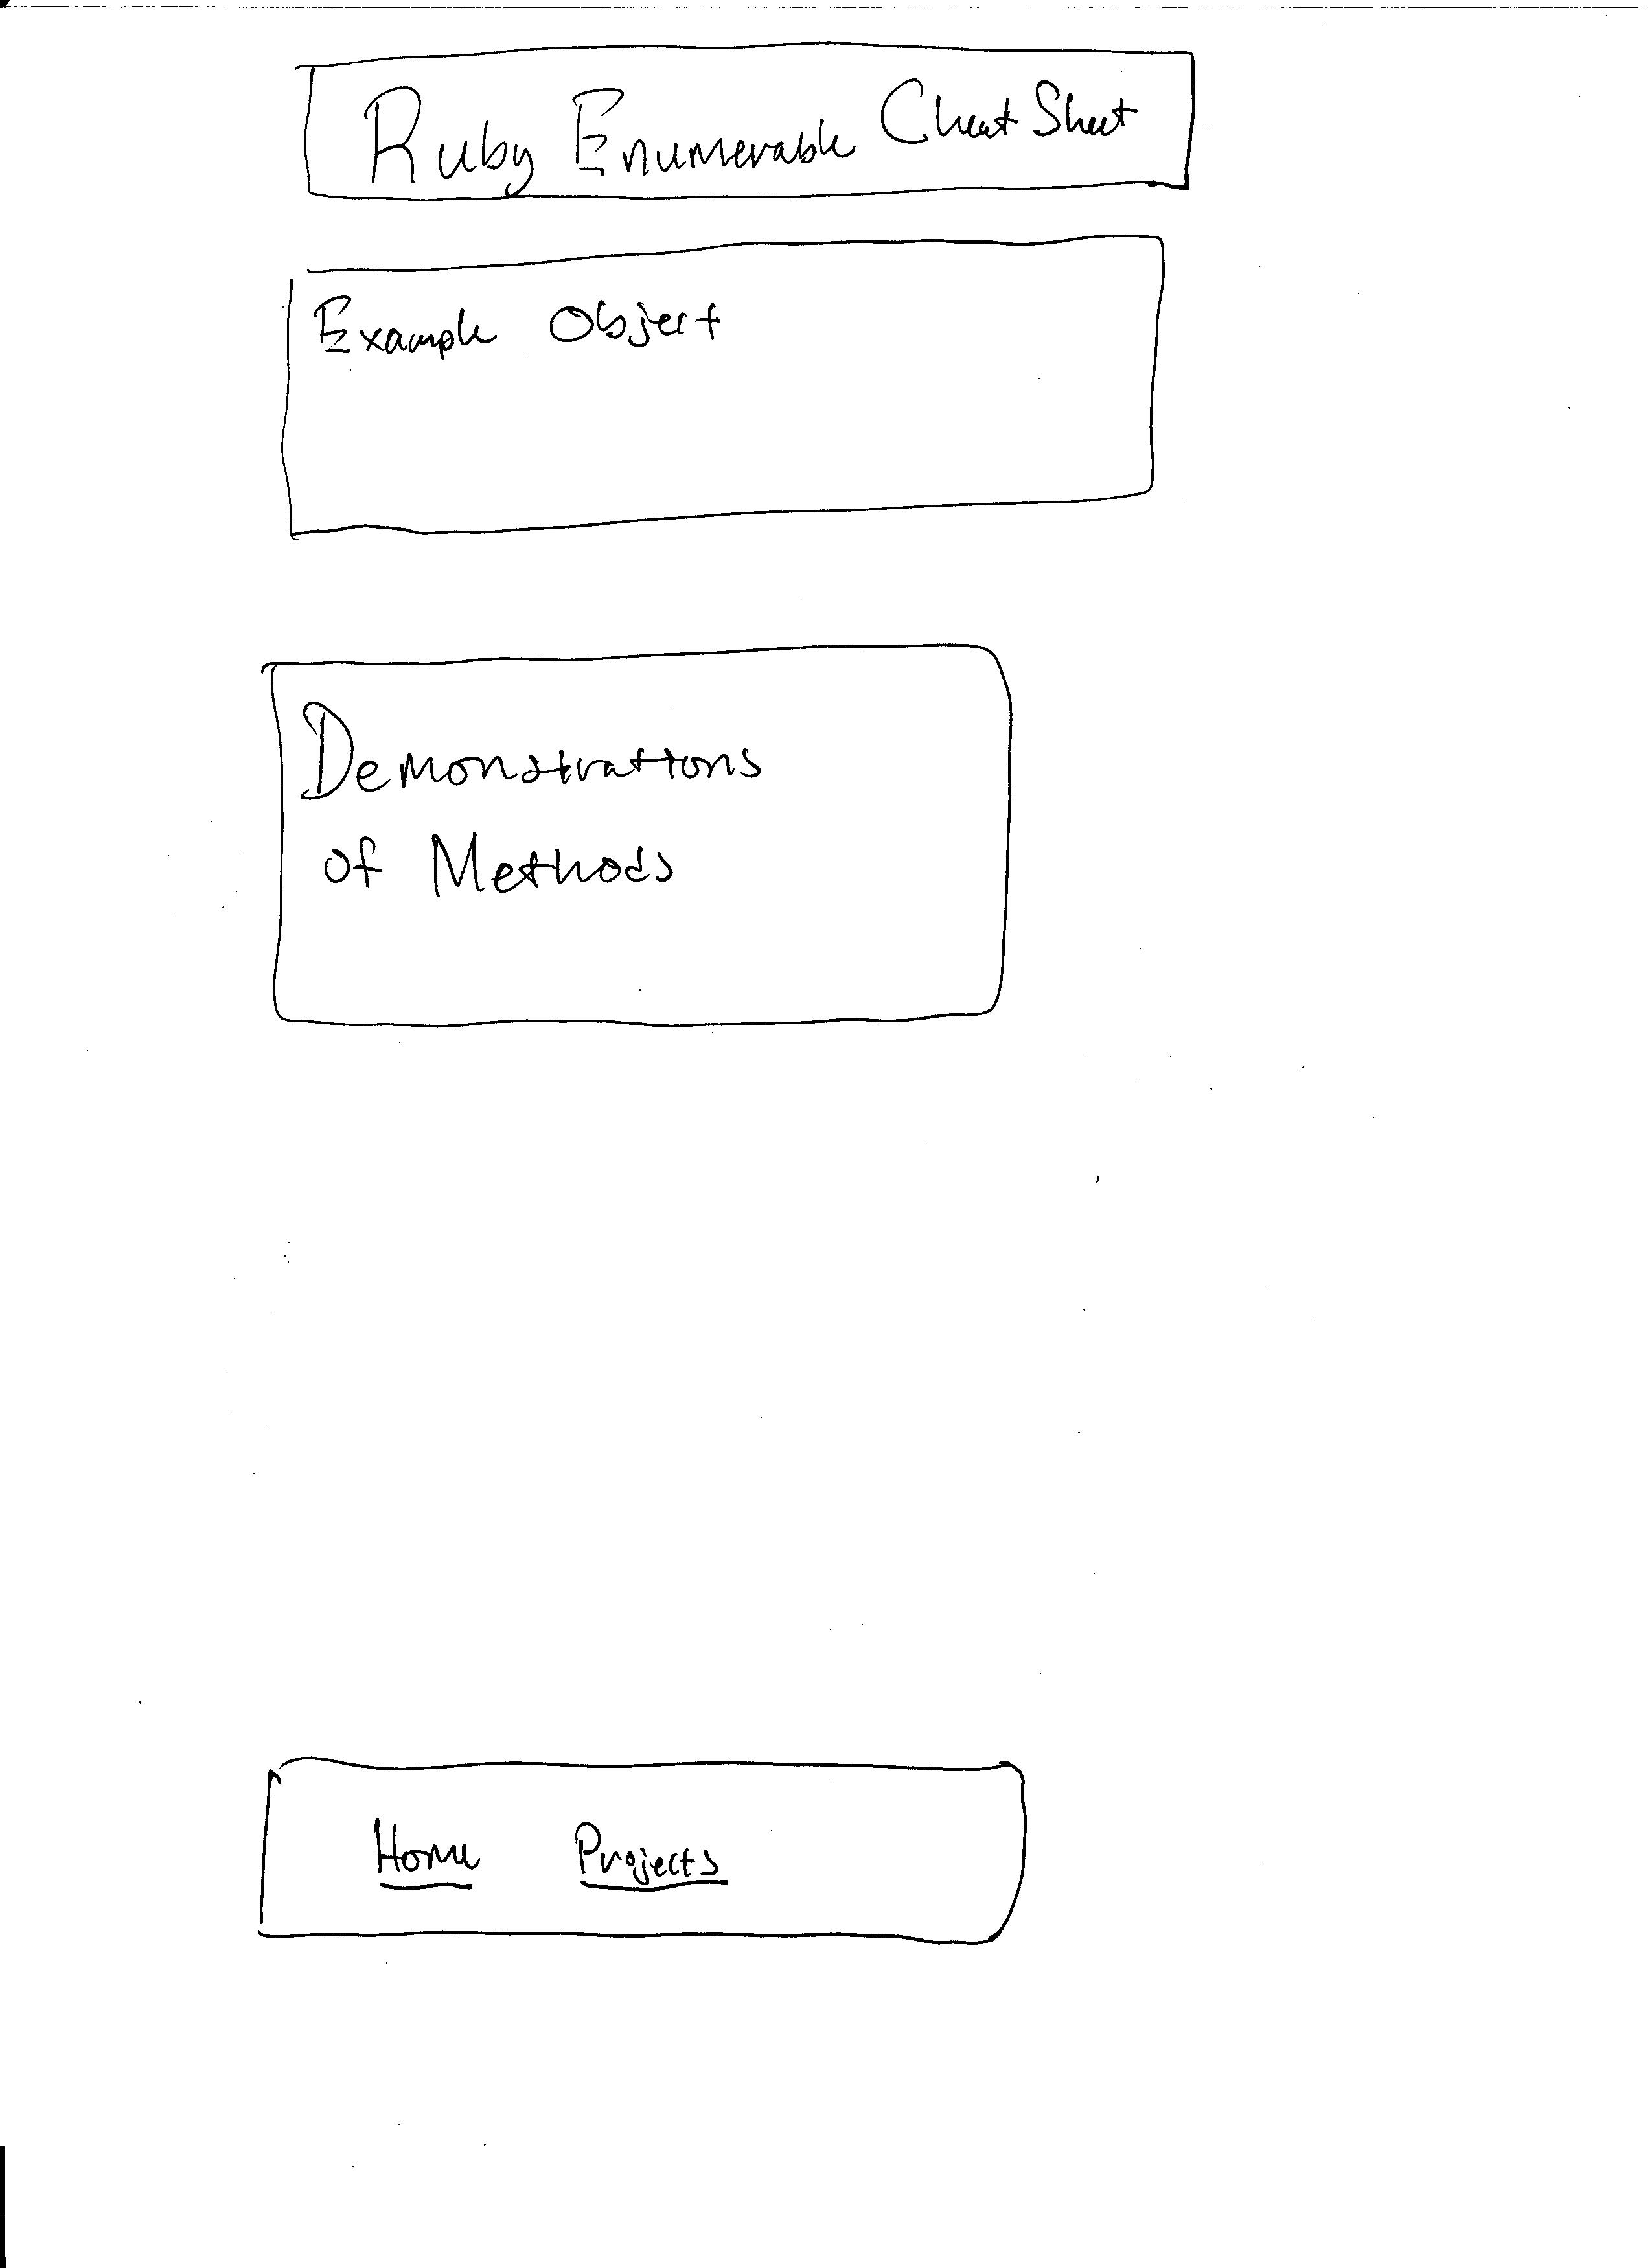 Ruby Enumerable Cheat Sheet
Example Object
Demonstrations
of Methods
Home Projects